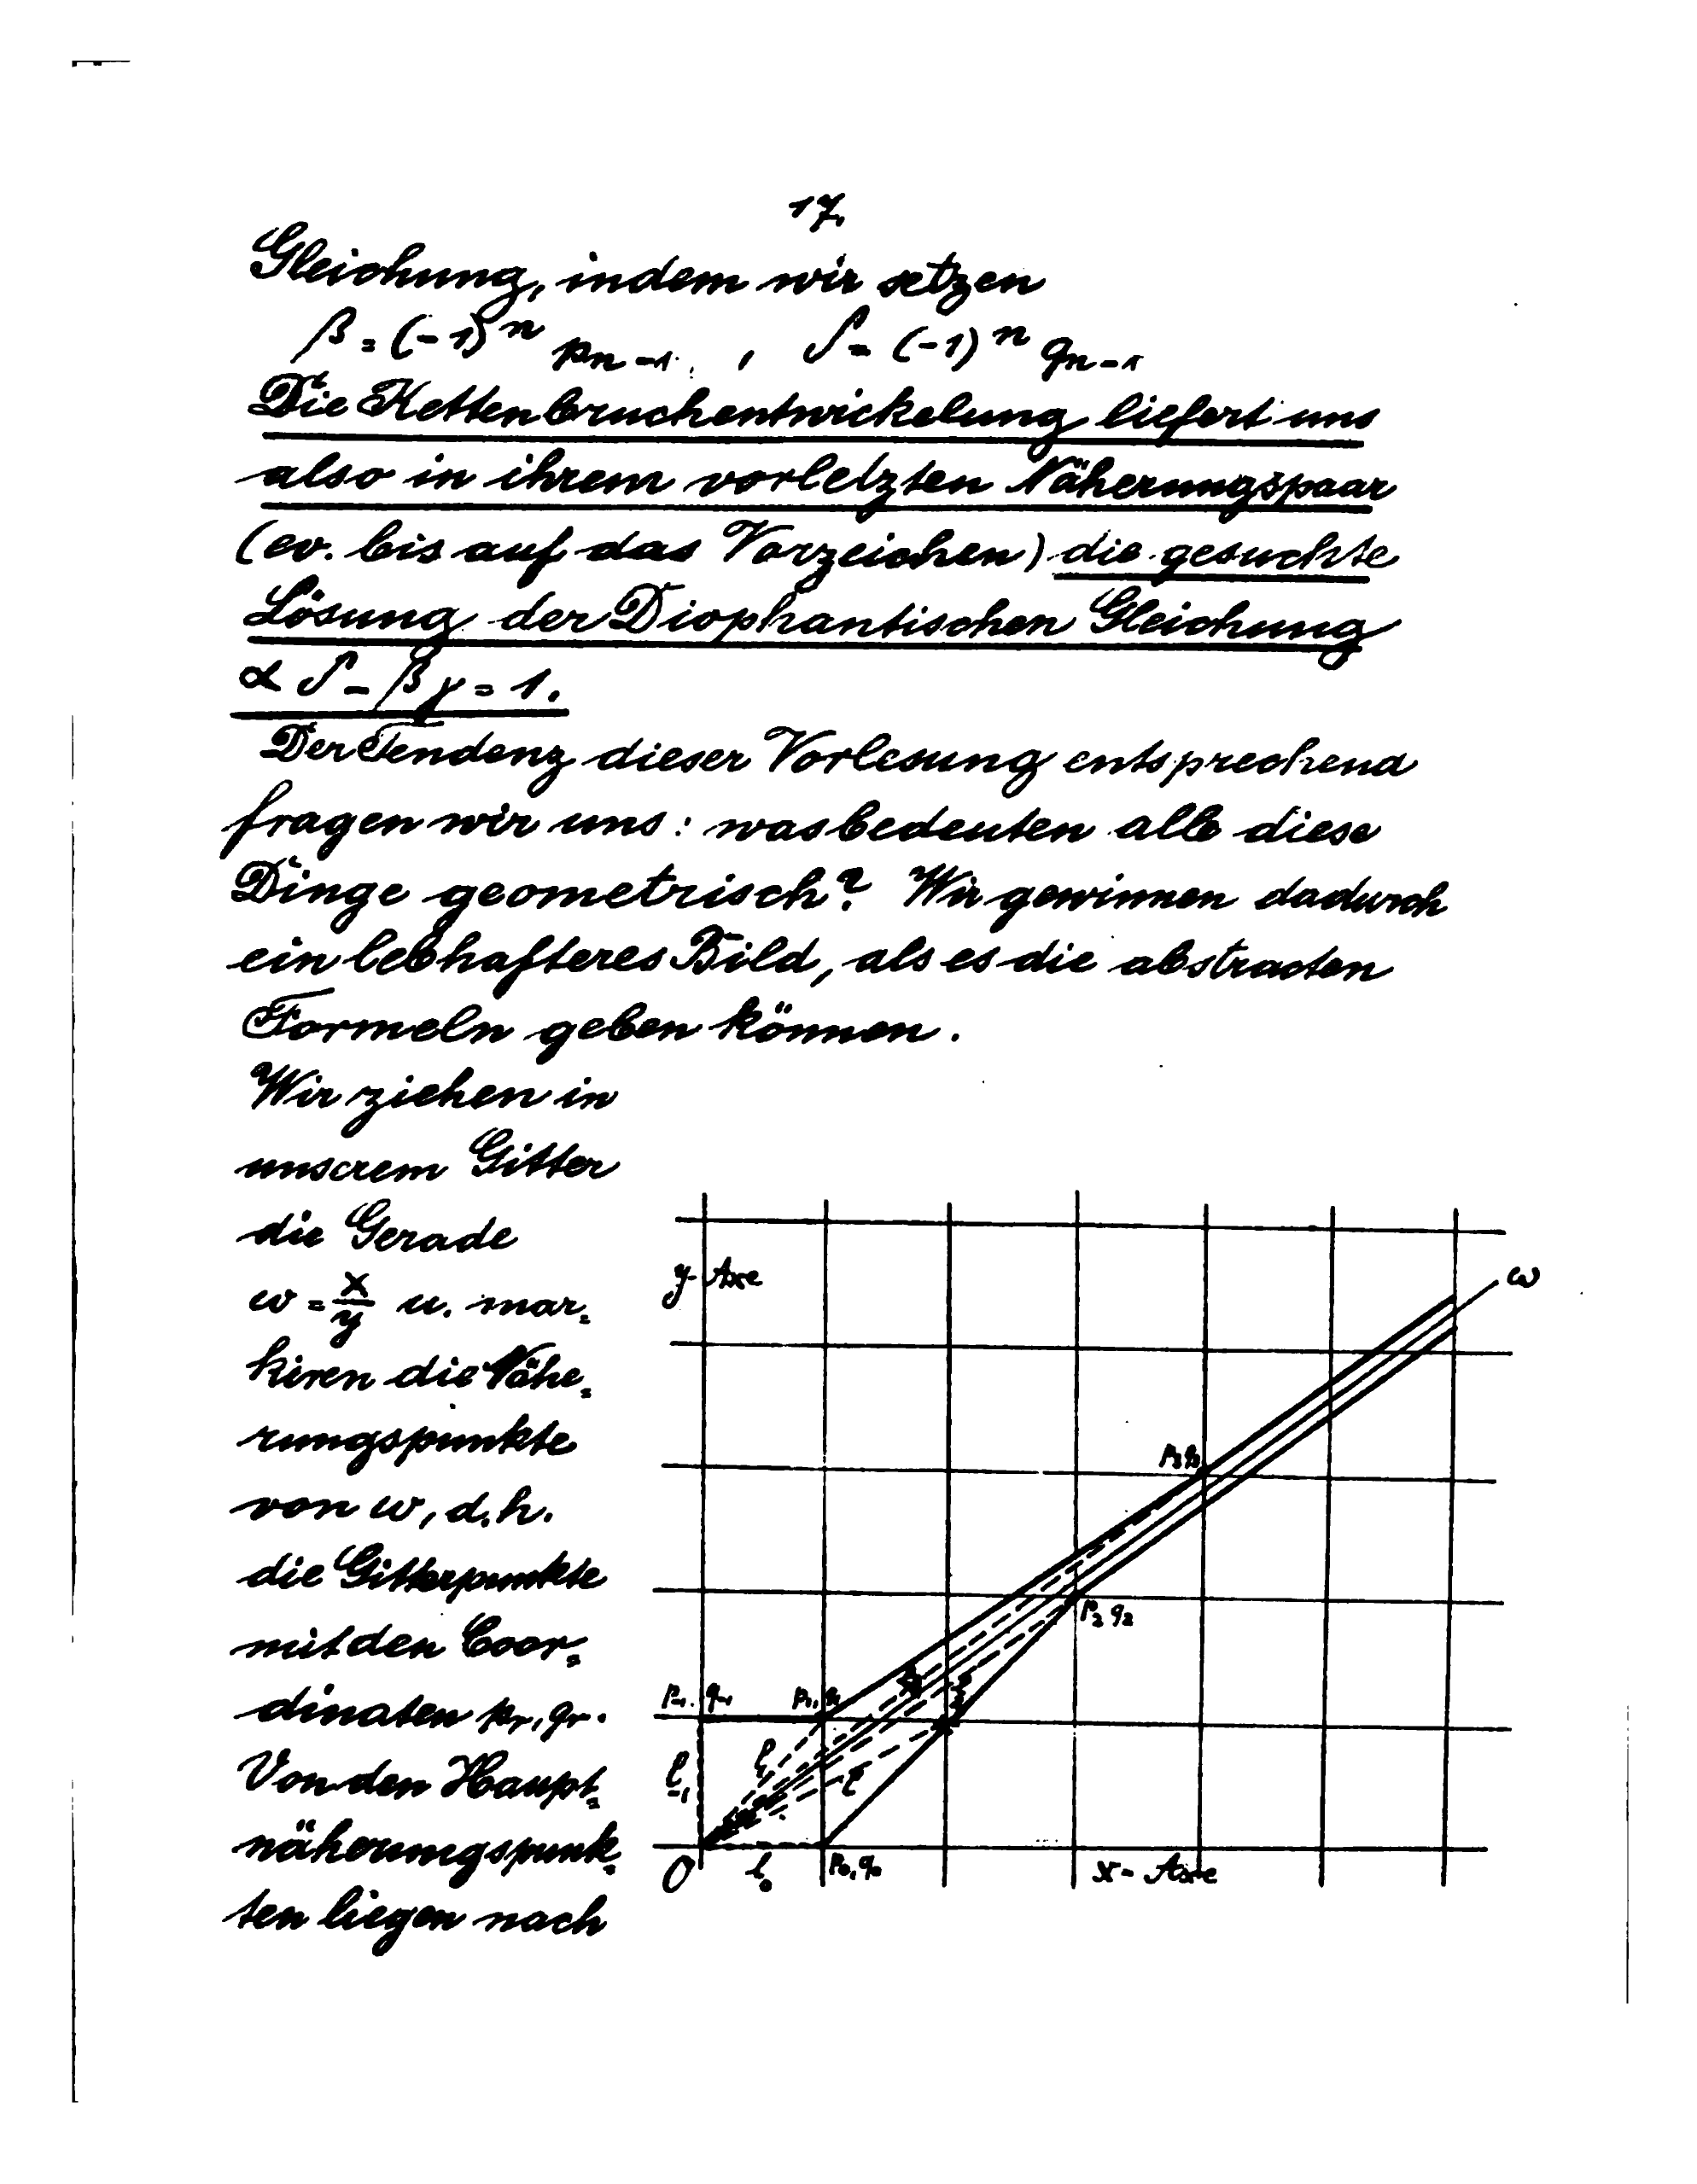 17.
Gleichung, indem wir setzen
β = (-1)^n p_{n-1}, δ = (-1)^n q_{n-1}
Die Kettenbruchentwickelung liefert uns
also in ihrem vorletzten Näherungspaar
(ev. bis auf das Vorzeichen) die gesuchte
Lösung der Diophantischen Gleichung
αδ - βγ = 1.
Der Tendenz dieser Vorlesung entsprechend
fragen wir uns: was bedeuten alle diese
Dinge geometrisch? Wir gewinnen dadurch
ein lebhafteres Bild, als es die abstracten
Formeln geben können.
Wir ziehen in
unserem Gitter
die Gerade
ω = x/y u. mar=
kiren die Nähe=
rungspunkte
von ω, d.h.
die Gitterpunkte
mit den Coor=
dinaten p_r, q_r.
Von den Haupt=
näherungspunk=
ten liegen nach
y-Axe
ω
p_3 q_3
p_2 q_2
p_{-1}, q_{-1}
p_1, q_1
l_1
l_{-1}
O
l_0
p_0, q_0
x-Axe